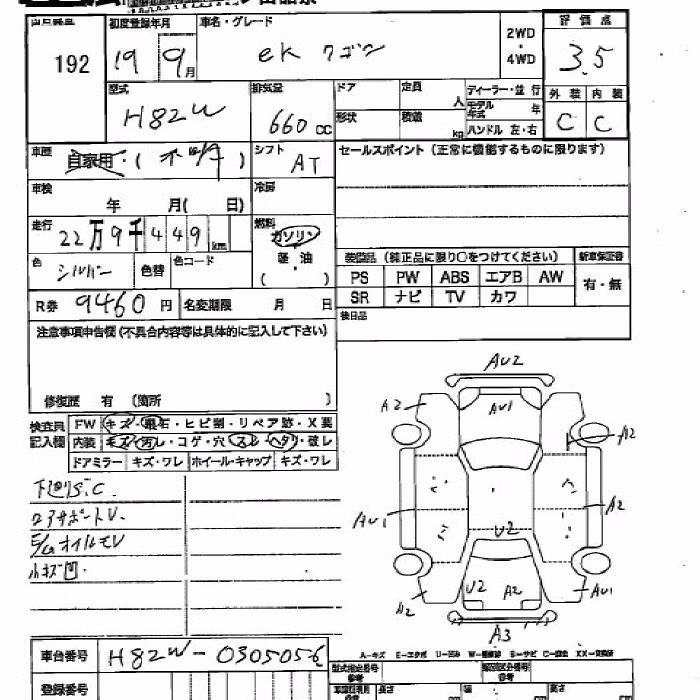 出品番号 初度登録年月 車名・グレード 2WD ・ 4WD 評価点
192 19 9月 ek ワゴン 3.5
型式 排気量 ドア 定員 人 ディーラー・並行 外装 内装
H82W 660cc 形状 積載 kg モデル年式 年 C C
ハンドル 左・右
車歴 自家用・( ) シフト AT セールスポイント (正常に機能するものに限ります)
車検 年 月( 日) 冷房
走行 22万9千449km 燃料 ガソリン
軽・油
( )
色 シルバー 色替 色コード 装備品 (純正品に限り○をつけてください) 新車保証書
PS PW ABS エアB AW 有・無
R券 9460円 名変期限 月 日 SR ナビ TV カワ
注意事項申告欄 (不具合内容等は具体的に記入して下さい) 後日品
修復歴 有 (箇所 )
検査員記入欄 FW キズ・飛石・ヒビ割・リペア跡・X要
内装 キズ・汚レ・コゲ・穴・スレ・ヘタリ・破レ
ドアミラー キズ・ワレ ホイール・キャップ キズ・ワレ
下廻りS.C.
リアサポートU.
E/Gオイルモレ
小キズ凹.
AU2
A2 AU1 A2
AU1 A2
U2
U2 A2
A2 AU1
A3
A-キズ E-エクボ U-凹み W-補修跡 S-サビ C-腐食 XX-交換済
車台番号 H82W-0305056
登録番号
型式指定番号 参考 類別区分番号 参考
長さ 幅 高さ
cm cm